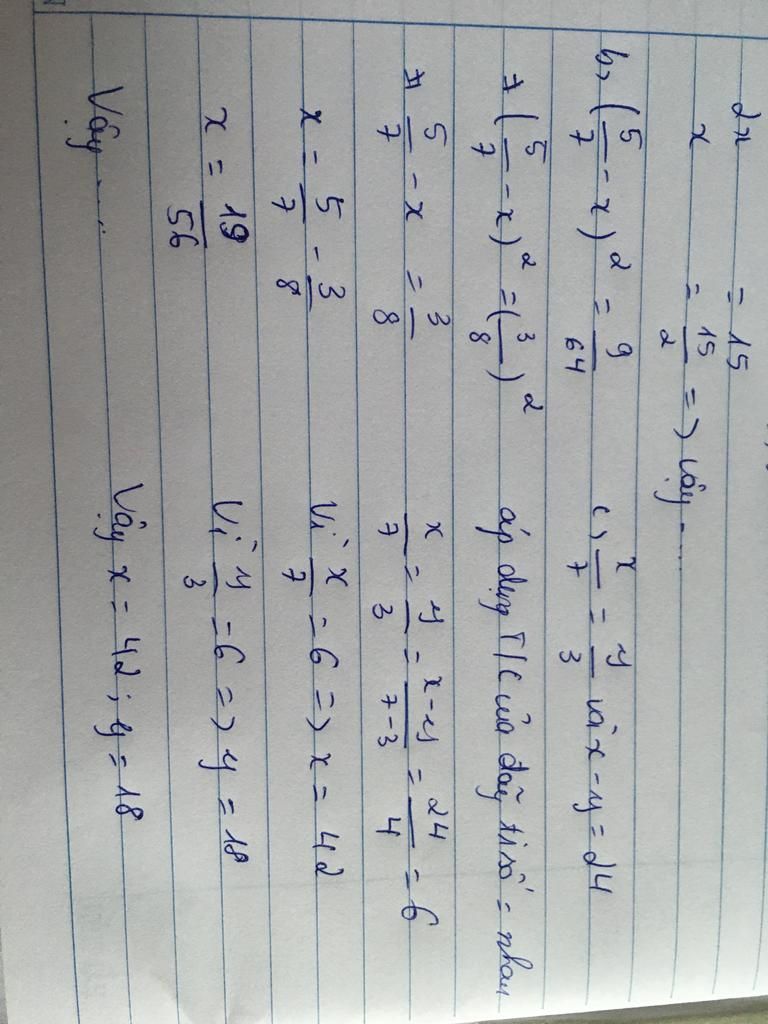 2x = 15
x = 15/2 => Vậy ....
b, (5/7 - x)² = 9/64
+ (5/7 - x)² = (3/8)²
+) 5/7 - x = 3/8
x = 5/7 - 3/8
x = 19/56
Vậy ....
c, x/7 = y/3 và x - y = 24
áp dụng T/C của dãy tỉ số = nhau
x/7 = y/3 = x-y/7-3 = 24/4 = 6
Vì x/7 = 6 => x = 42
Vì y/3 = 6 => y = 18
Vậy x = 42 ; y = 18